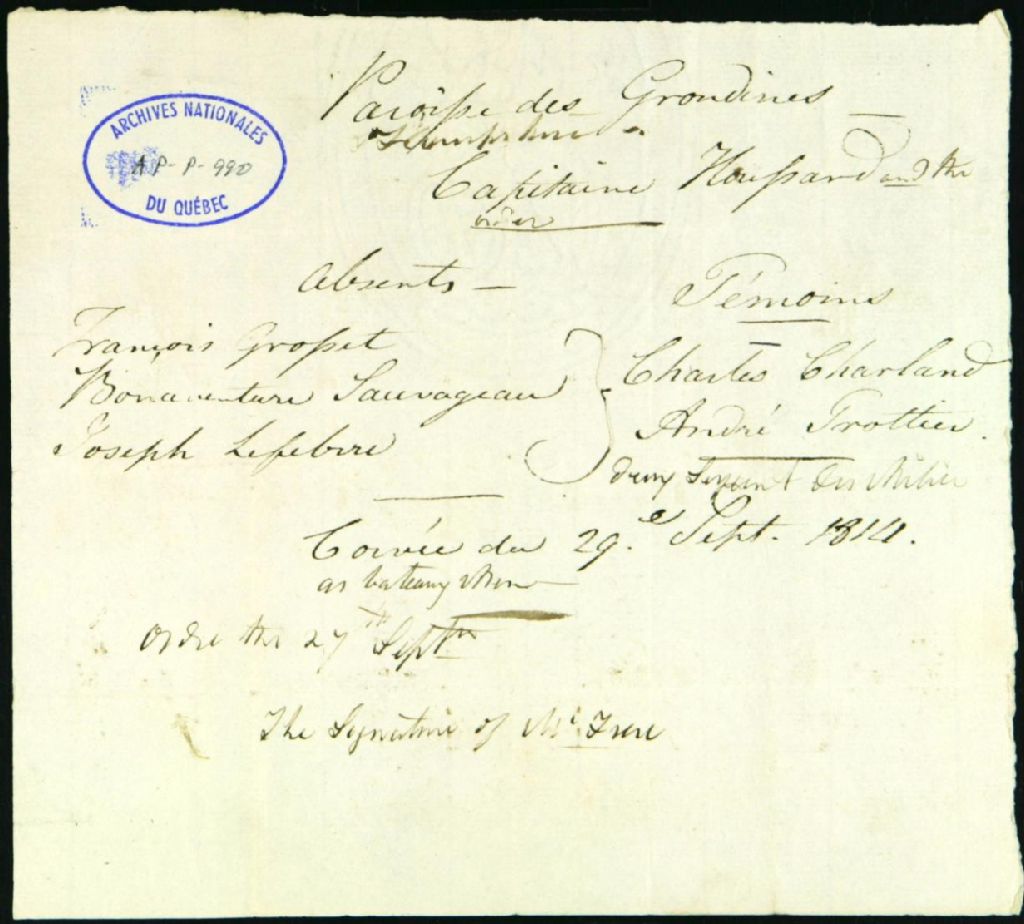 ARCHIVES NATIONALES
AP-P-990
DU QUÉBEC
Paroisse des Grondines
Capitaine Houssard and the
order
Absents —
Témoins
François Grosset
Bonaventure Sauvageau
Joseph Lefebvre
Charles Charland
André Trottier.
deux Sergent des Milice
Corvée du 29.e Sept. 1814.
as bateaux
Ordre the 27th Septr
The Signature of Mr. Frere